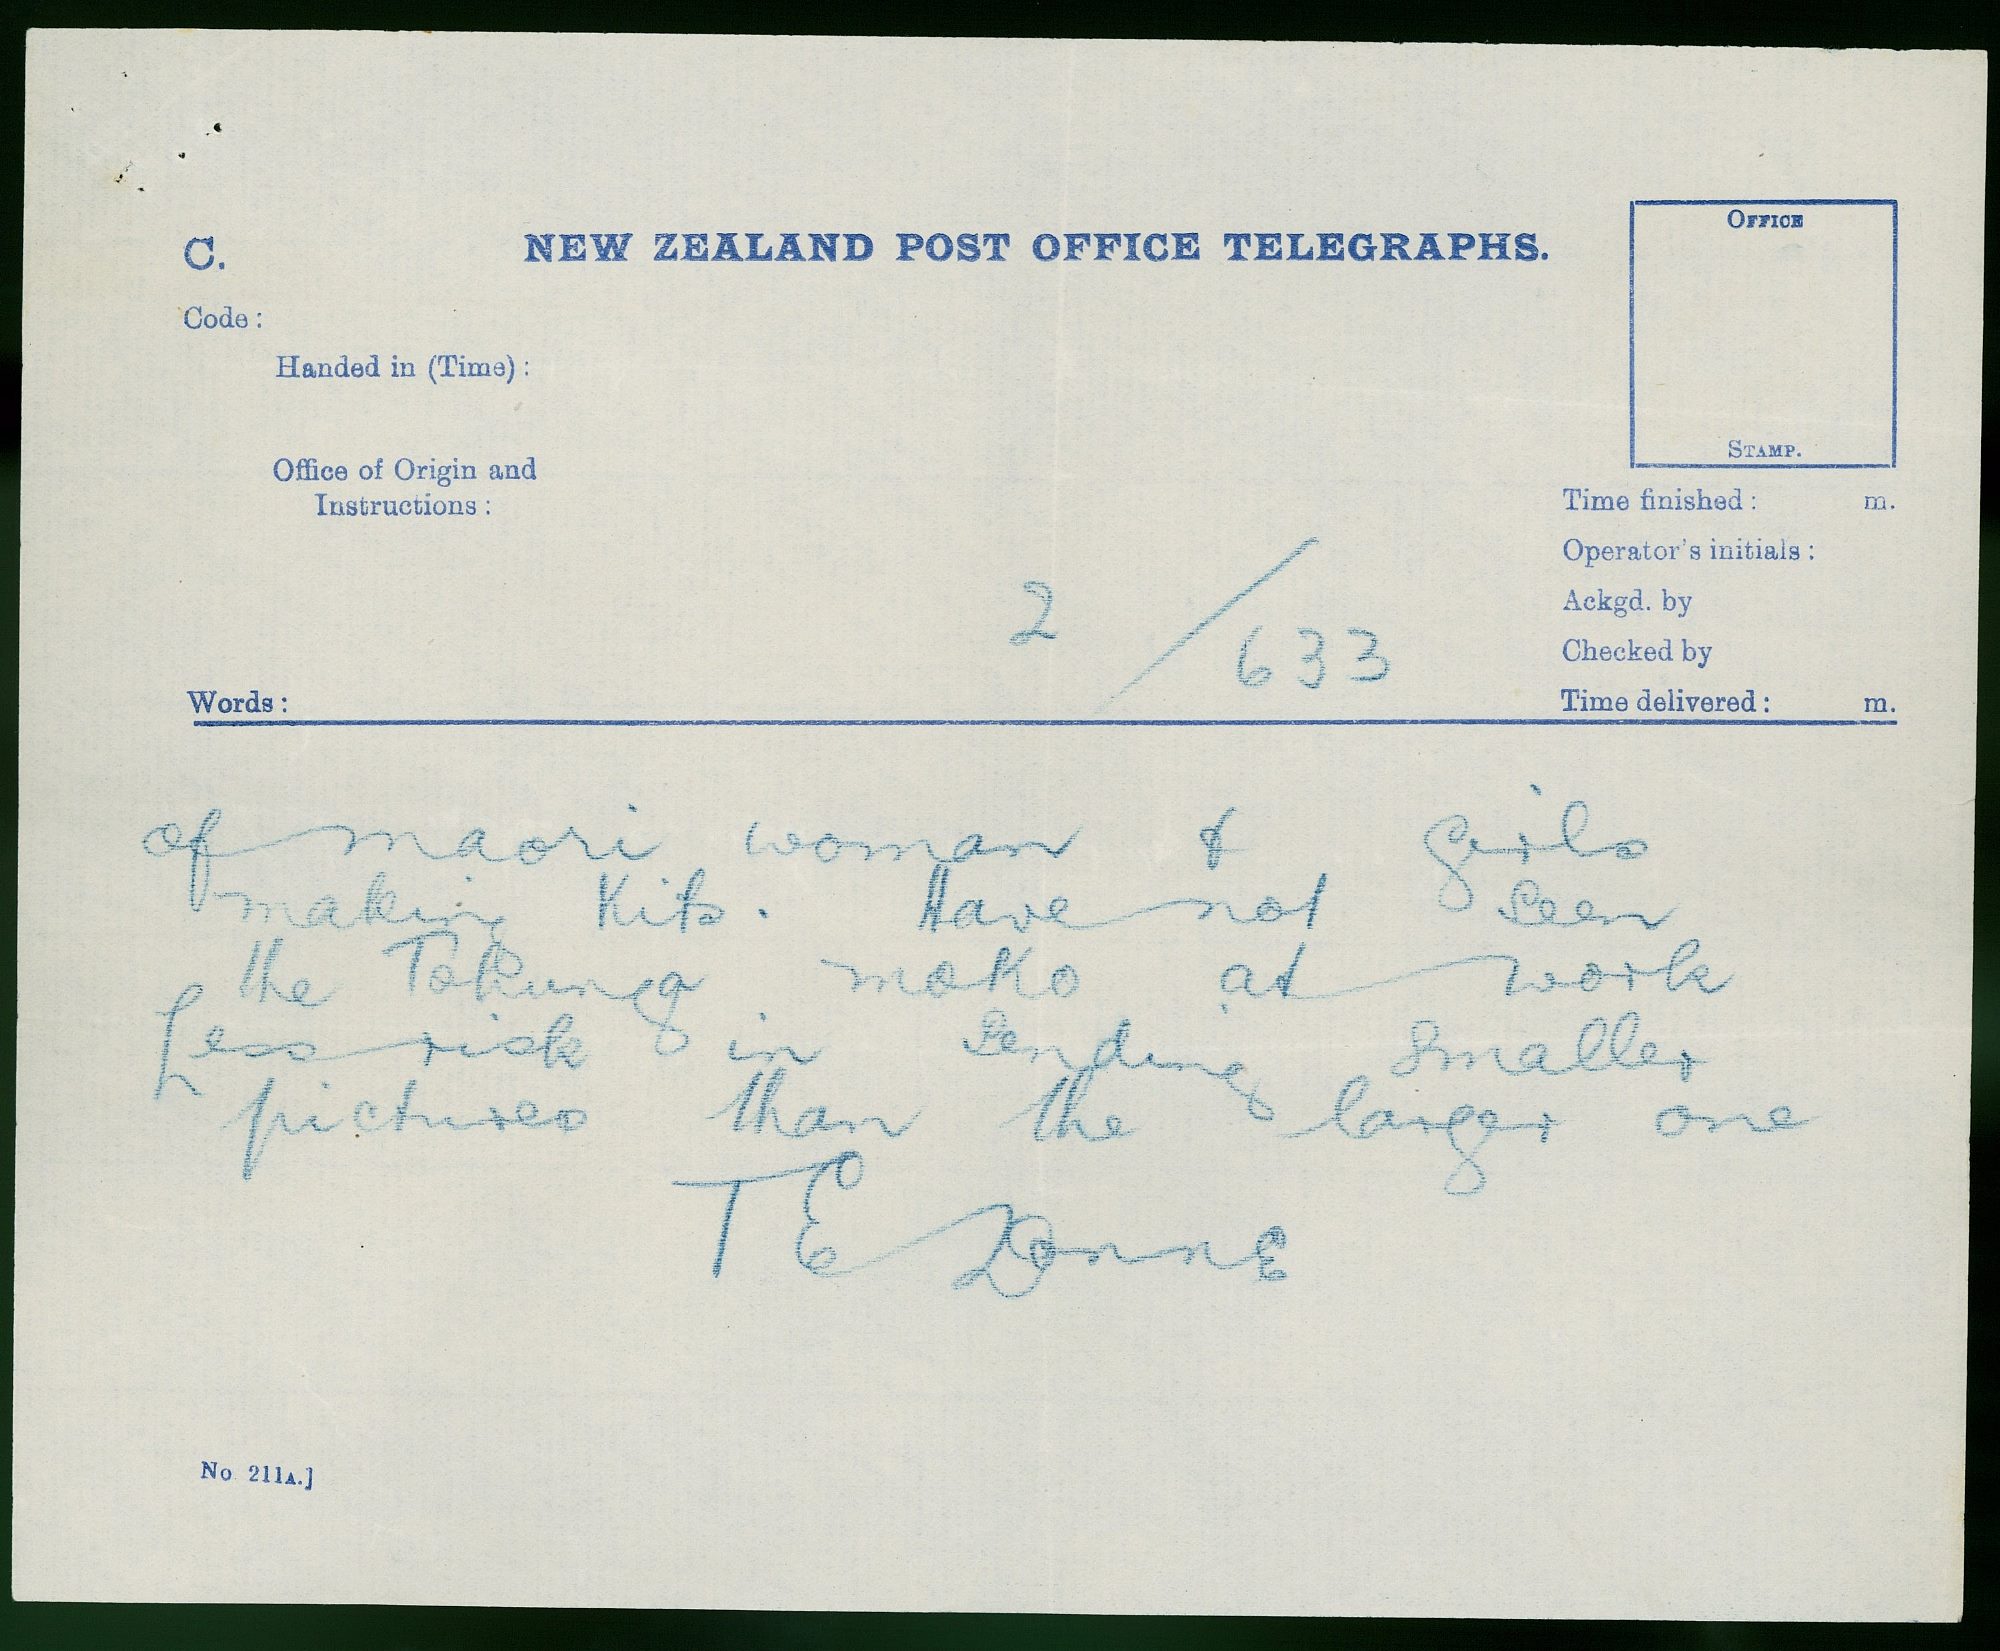 C.
NEW ZEALAND POST OFFICE TELEGRAPHS.
OFFICE
STAMP.
Code :
Handed in (Time) :
Office of Origin and
Instructions :
Time finished : m.
Operator's initials :
Ackgd. by
Checked by
2 / 633
Words :
Time delivered : m.
of maori woman & girls
making Kits. Have not seen
the Tohunga moko at work
Less risk in sending smaller
pictures than the larger one
T E Donne
No 211A.]